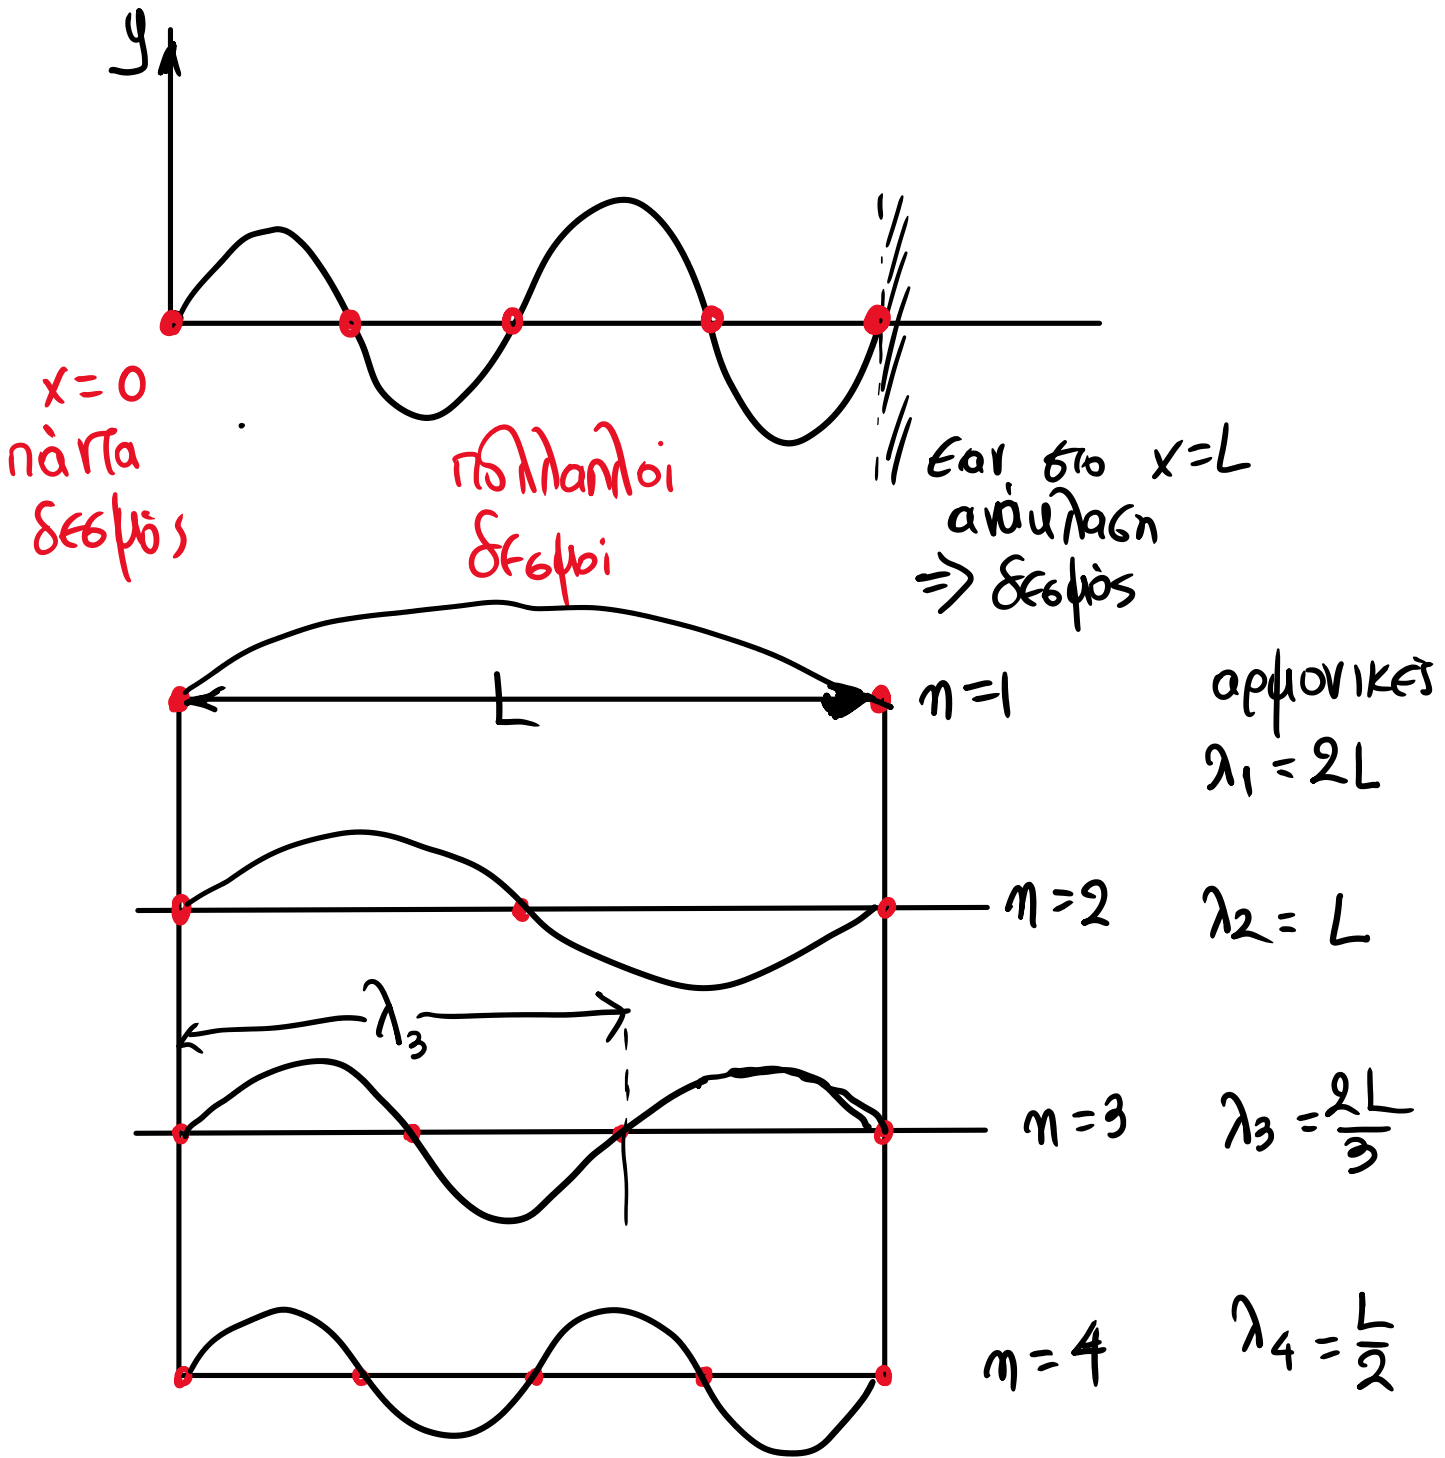 y
x=0
πάντα
δεσμός
πολλαπλοί
δεσμοί
εαν στο x=L
ανάκλαση
⇒ δεσμός
L
n=1
αρμονικές
λ₁ = 2L
n=2
λ₂ = L
λ₃
n=3
λ₃ = 2L/3
n=4
λ₄ = L/2